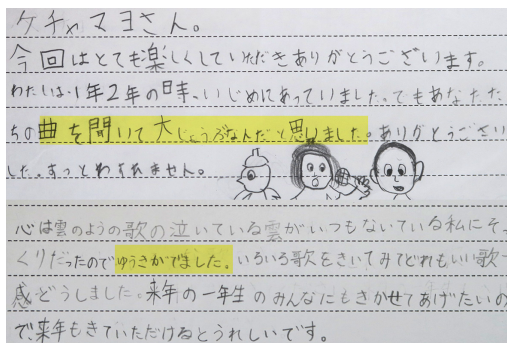 ケチャマヨさん。
今回はとても楽しくしていただきありがとうございます。
わたしは、1年2年の時、いじめにあっていました。でもあなたた
ちの曲を聞いて大じょうぶなんだと思いました。ありがとうござい
した。ずっとわすれません。
心は雲のようの歌の泣いている雲がいつもないている私にそっ
くりだったのでゆうきがでました。いろいろ歌をきいてみてどれもいい歌
感どうしました。来年の一年生のみんなにもきかせてあげたいの
で、来年もきていただけるとうれしいです。